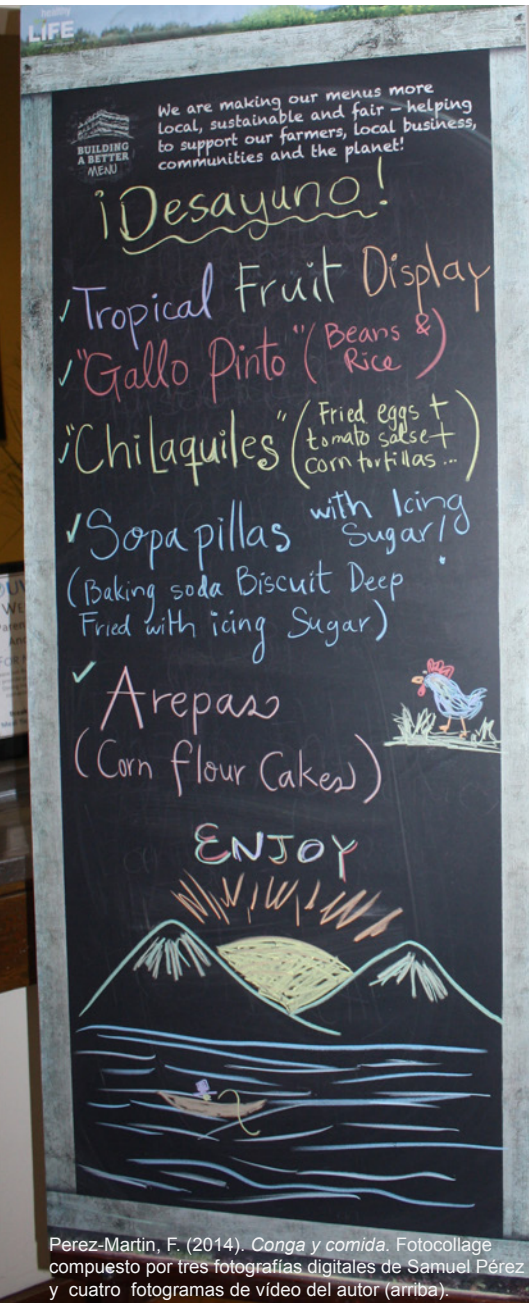 healthy
LIFE
We are making our menus more
local, sustainable and fair – helping
to support our farmers, local business,
communities and the planet!
BUILDING
A BETTER
MENU
¡Desayuno!
Tropical Fruit Display
"Gallo Pinto" (Beans &
Rice)
"Chilaquiles" (Fried eggs +
tomato salse +
corn tortillas ...)
Sopapillas with Icing
Sugar!
(Baking soda Biscuit Deep
Fried with icing Sugar)
Arepas
(Corn flour Cakes)
ENJOY
Perez-Martin, F. (2014). Conga y comida. Fotocollage
compuesto por tres fotografías digitales de Samuel Pérez
y cuatro fotogramas de vídeo del autor (arriba).